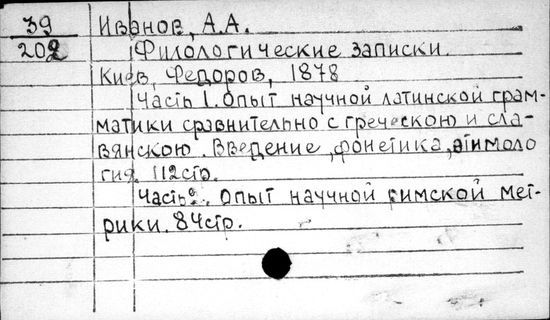 39 Иванов, А.А.
202 Филологические записки.
Киев, Федоров, 1878
Часть 1. Опыт научной латинской грам-
матики сравнительно с греческою и сла-
вянскою. Введение, фонетика, этимоло
гия. 112стр.
Часть 2. Опыт научной римской мет-
рики. 84стр.